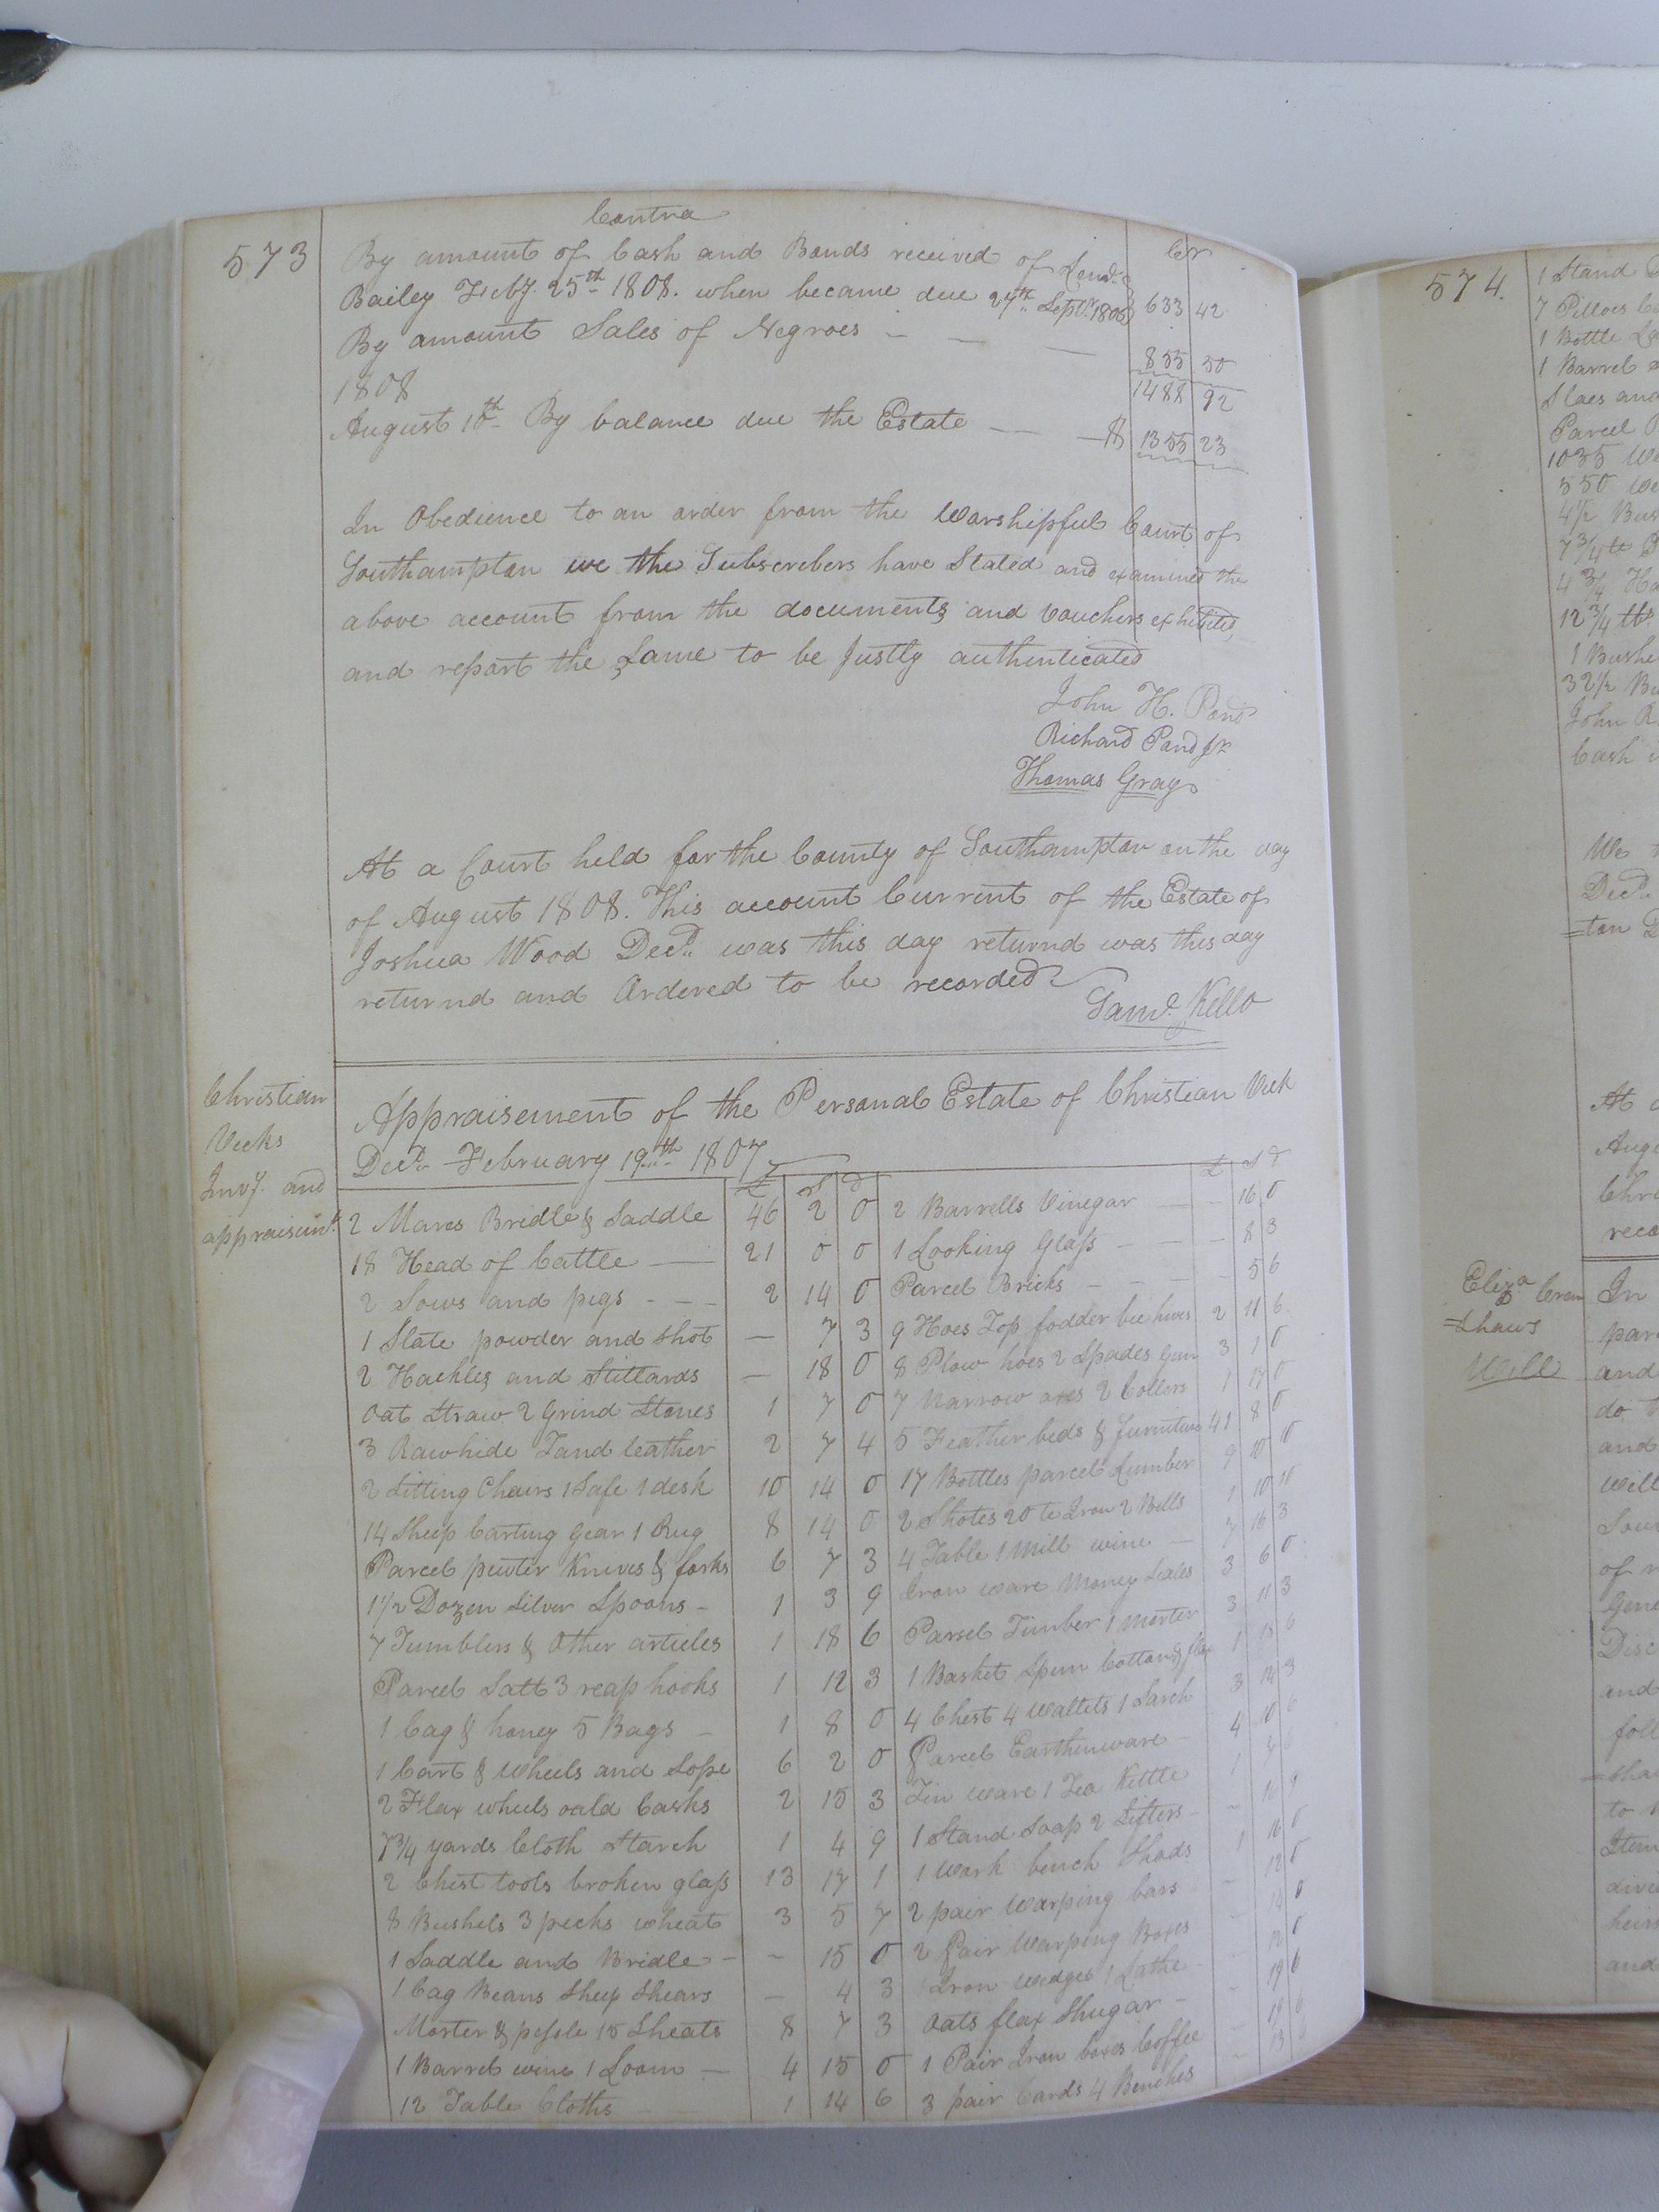 Contra
573 By amount of Cash and Bonds received of Lemd. Cr
Bailey Feby. 25th 1808. when became due 24th Septr. 1806 633 42
By amount Sales of Negroes — — — 855 50
1808 1488 92
August 10th By balance due the Estate — — $ 1355 23
In Obedience to an order from the Worshipful Court of
Southampton we the Subscribers have Stated and examined the
above account from the documents and vouchers exhibited,
and report the Same to be Justly authenticated
John H. Pond
Richard Pond Jr
Thomas Gray
At a Court held for the County of Southampton on the day
of August 1808. This account Current of the Estate of
Joshua Wood Decd. was this day returnd was this day
returnd and Ordered to be recorded
Saml. Kello
Christian
Vicks
Invy. and
appraisimt.
Appraisement of the Personal Estate of Christian Vick
Decd. February 19th 1807
£ S d
2 Mares Bridle & Saddle 46 2 0
18 Head of Cattle — 21 0 0
2 Sows and pigs - - - 2 14 0
1 Slate powder and shot — 7 3
2 Hackles and Stillards — 18 0
Oat Straw 2 Grind Stones 1 7 0
3 Rawhide Tand leather 2 7 4
2 Sitting Chairs 1 Safe 1 desk 10 14 0
14 Sheep Carting Gear 1 Rug 8 14 0
Parcel pewter Knives & forks 6 7 3
1 1/2 Dozen Silver Spoons - 1 3 9
7 Tumblers & Other articles 1 18 6
Parcel Salt 3 reap hooks 1 12 3
1 Cag & honey 5 Bags - 1 8 0
1 Cart & Wheels and Sope 6 2 0
2 Flax wheels oald Casks 2 15 3
7 3/4 yards Cloth Starch 1 4 9
2 Chest tools broken glass 13 17 1
8 Bushels 3 pecks wheat 3 5 7
1 Saddle and Bridle - - 15 0
1 Cag Beans Sheep Shears — 4 3
Morter & pessle 15 Sheats 8 7 3
1 Barrel wine 1 Loom — 4 15 0
12 Table Cloths 1 14 6
£ S d
2 Barrells Vinegar — - 16 0
1 Looking Glass - - - 8 3
Parcel Bricks - - - 5 6
9 Hoes Top fodder bee hives 2 11 6
8 Plow hoes 2 Spades Gun 3 1 0
7 Narrow axes 2 Collers 1 17 0
5 Feather beds & furniture 41 8 0
17 Bottles parcel Lumber 9 10 0
2 Shotes 20 lb Iron 2 Bells 1 10 10
4 Table 1 Mill wine — 7 16 3
Iron ware Money Scales 3 6 0
Parsel Timber 1 Morter 3 11 3
1 Basket Spun Cotton & flax 1 15 6
4 Chest 4 Wallets 1 Sarch 3 14 3
Parcel Earthenware - 4 10 6
Tin ware 1 Tea Kettle 1
1 Stand Soap 2 Sifters - - 16 9
1 Work bench Shads 1 16 0
2 pair Warping bars - 12 0
2 Pair Warping Boxes - 0
Iron Wedges 1 Lathe - 12 0
Oats flax Shugar - - 19 6
1 Pair Iron boxes Coffee - 19
3 pair Cards 4 Benches - 13
574.
1 Stand
7 Pillows
1 Bottle
1 Barrel
Slaes and
Parcel
1035
550
4 1/2
7 3/4 lb
4 3/4
12 3/4 lb
1 Bushe
32 1/2
John R
Cash
We
Decd.
=ton
At
Augu
Chri
reco
Eliza Cren
=shaws
Will
In
par
and
do
and
will
Sou
of
Gene
Disc
and
foll
=sha
to
Item
heirs
and